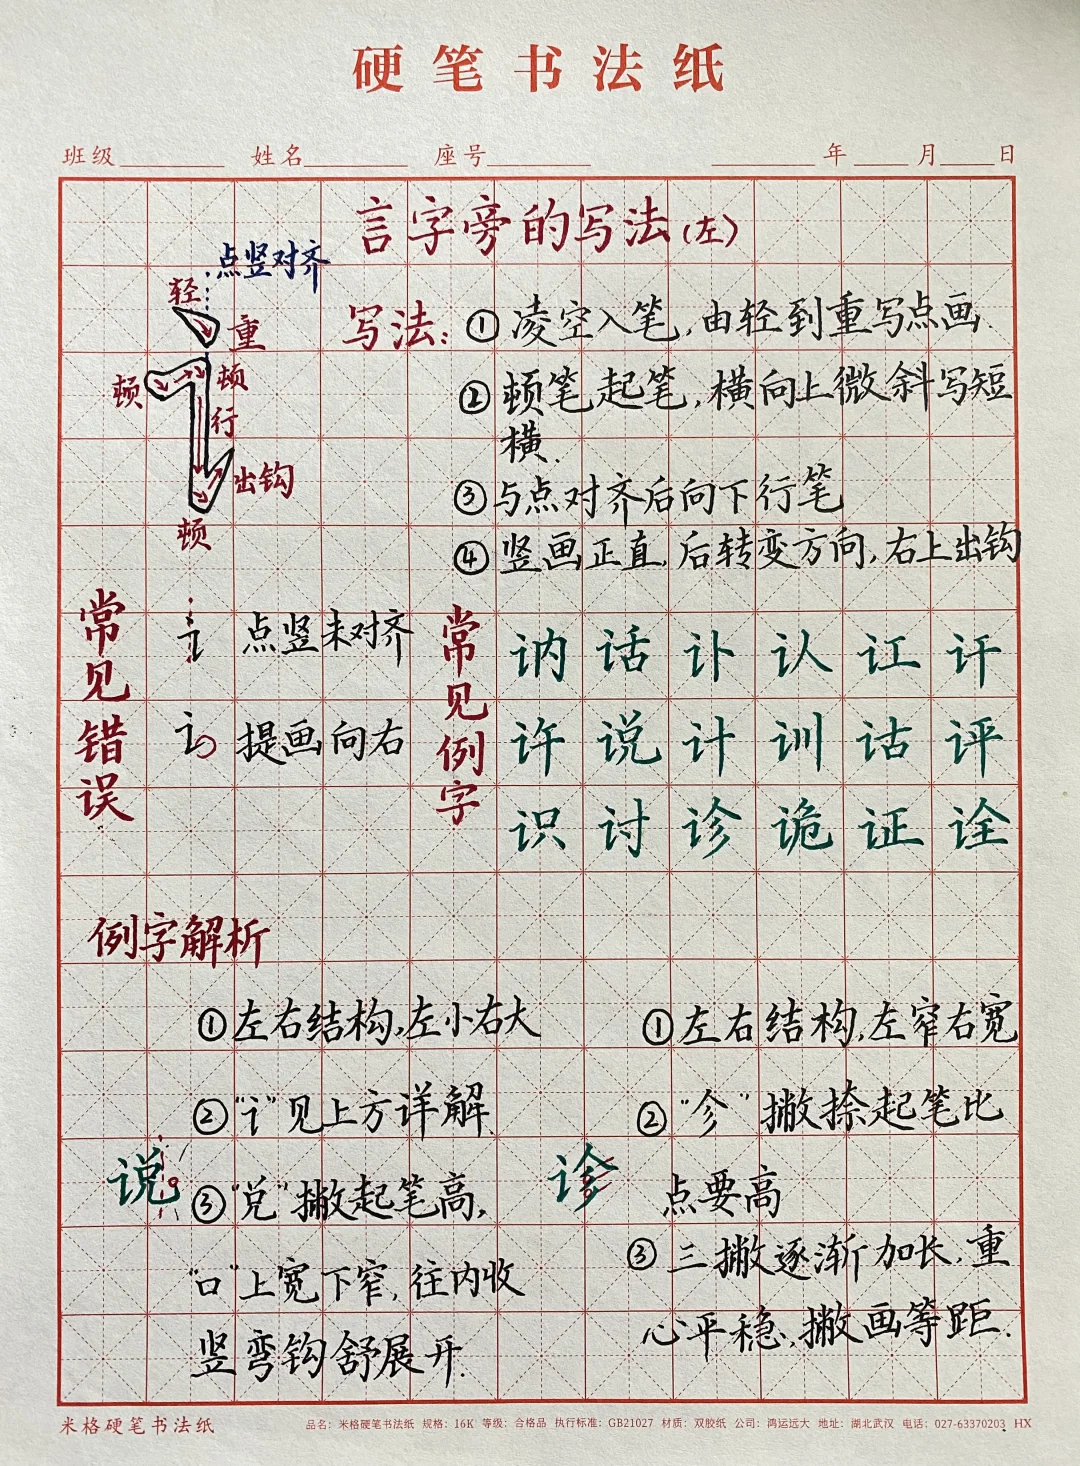 硬笔书法纸
班级 姓名 座号 年 月 日
言字旁的写法(左)
点竖对齐
轻
重
顿
顿
行
出钩
顿
写法:①凌空入笔,由轻到重写点画.
②顿笔起笔,横向上微斜写短
横.
③与点对齐后向下行笔
④竖画正直,后转变方向,右上出钩
常见错误
讠 点竖未对齐
讠 提画向右
常见例字
讷话讣认讧讦
许说计训诂评
识讨诊诡证诠
例字解析
说
①左右结构,左小右大
②“讠”见上方详解.
③“兑”撇起笔高,
“口”上宽下窄,往内收
竖弯钩舒展开.
诊
①左右结构,左窄右宽
②“㐱”撇捺起笔比
点要高
③三撇逐渐加长,重
心平稳,撇画等距.
米格硬笔书法纸
品名:米格硬笔书法纸 规格:16K 等级:合格品 执行标准:GB21027 材质:双胶纸 公司:鸿运远大 地址:湖北武汉 电话:027-63370203 HX